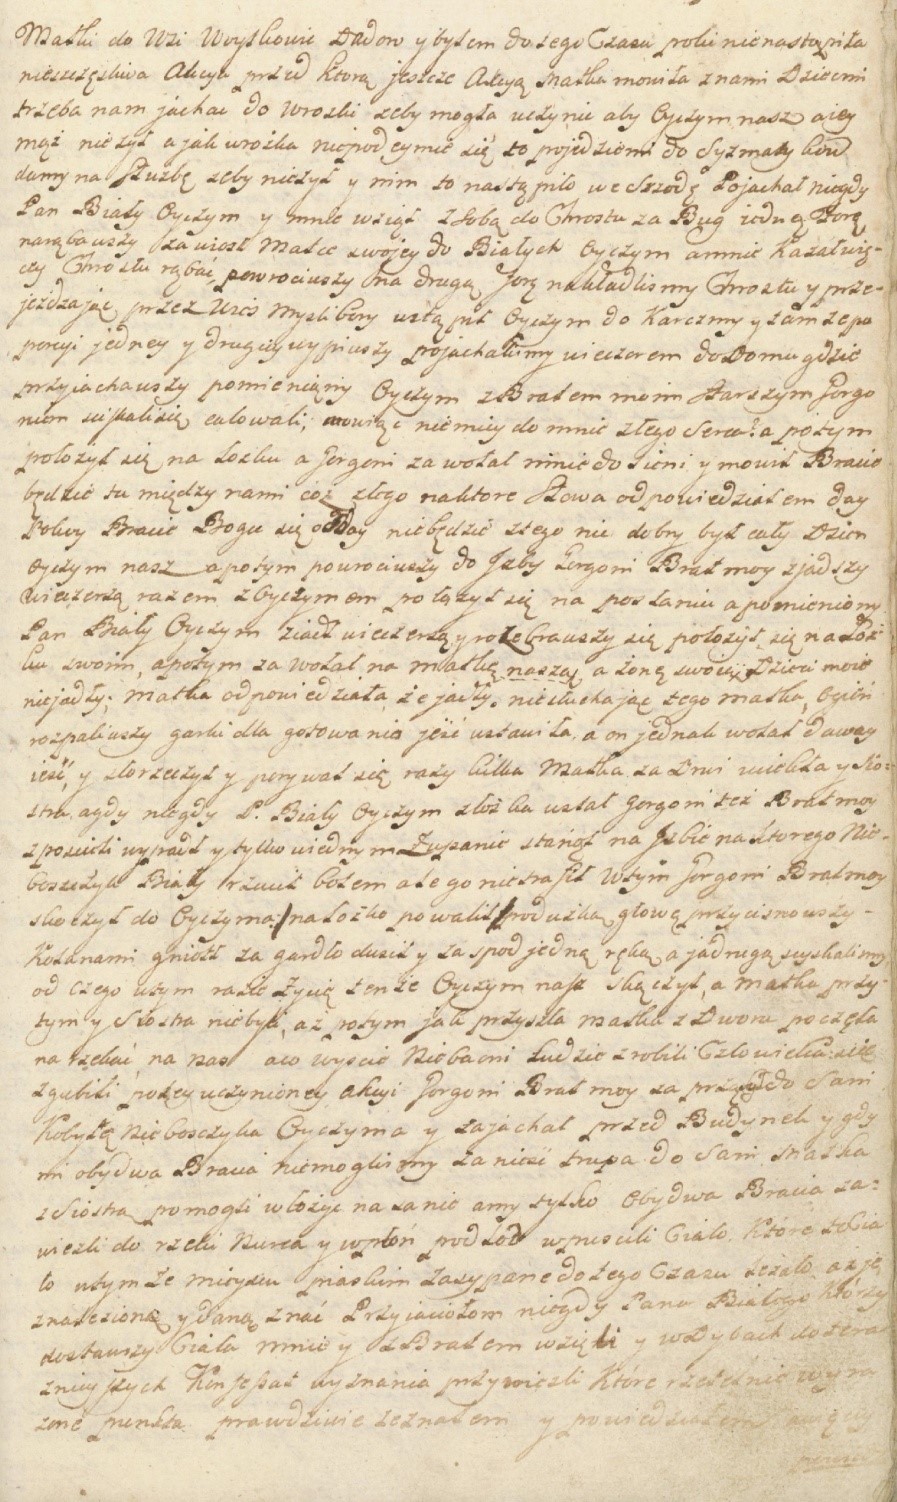 Matki do Wsi Wyszkowic Dudow y byłem do tego Czasu poki nienastąpiła
nieszczęsliwa Akcya przed ktorą jeszcze Akcyą Matka mowiła z nami Dziecmi
trzeba nam jachac do Wrozki zeby mogła uczynic aby Oyczym nasz a iey
mąż nieżył a jak wrożka niepodeymie się to pojedziemi do Syzmatykow
damy na służbę zeby nieżył y nim to nastąpiło we Szrodę Pojachał niegdy
Pan Biały Oyczym y mnie wziął z sobą do Chrostu za Bug iedną Forę
narąbawszy zawiozł Matce swojey do Białych Oyczym a mnie Kazał wię-
cey Chrostu rąbać, powrociwszy na drugą forę nakładlismy Chrostu y prze-
jeżdzając przez Wieś Myslibory wstąpił Oyczym do Karczmy y tam ze po
porcyi jedney y drugiey wypiwszy pojachalismy wieczorem do Domu gdzie
przyjachawszy pomieniony Oyczym z Bratem moim starszym Gorgo
niem sciskali się całowali; mowiąc niemiey do mnie złego Serca? a potym
położył się na łozku a Gorgoni zawołał mnie do Sieni y mowił Bracie
będzie tu między nami coź złego na ktore Słowa odpowiedziałem day
Pokoy Bracie Bogu się odday niebędzie złego nie dobry był cały Dzien
Oyczym nasz a potym powrociwszy do Jzby Gorgoni Brat moy zjadszy
Wieczerzą razem z Oyczymem położył się na posłaniu a pomieniony
Pan Biały Oyczym ziadł wieczerzą y rozebrawszy się położył się na Łóż
ku swoim, a potym zawołał na matkę naszą, a żonę swoię, Dzieci moie
niejadły; Matka odpowiedziała że jadły, niesłuchając tego matka, Ogień
rozpaliwszy garki dla gotowania jeść ustawiła, a on jednak wołał daway
ieść, y złorzeczył y porywał się razy kilka Matka za Drwi uciekła y Sio-
stra, a gdy niegdy P. Biały Oyczym z łożka wstał Gorgoni tez Brat moy
z poscieli wypadł y tylko wiednym Zupanie stanął na Jzbie na ktorego Nie-
boszczyk Biały rzucił botem ale go nietrafił W tym Gorgoni Brat moy
skoczył do Oyczyma: na łożko powalił poduszką głowę przycisnowszy
Kolanami gniótł za gardło dusił y za spod jedną ręką, a ja drugą sciskalismy
od czego w tym razie Życie tenże Oyczym nasz skączył, a Matka przy-
tym y Siostra niebyli, aż potym jak przyszła matka z Dworu poczęła
narzekać, na nas a co wyscie Niebaczni Ludzie zrobili Człowieka scie
zgubili po tey uczynioney akcyi Gorgoni Brat moy zaprzągł do Sani
Kobyłę Nieboszczyka Oyczyma y zajachał przed Budynek y gdy
mi obydwa Bracia niemoglismy zaniesć trupa do Sani Matka
z Siostrą pomogli włożyc na sanie a my tylko Obydwa Bracia za-
wiezli do rzeki Nurca y w płoń pod Lod wpuscili Ciało. Które to Cia
ło w tym że mieyscu piaskiem zasypane do tego Czasu lezało, aż je
znaleziono y daną znać Przyjaciołom niegdy Pana Białego. Którzy
dostawszy Ciała mnie y z Bratem wzięli y w Dybach do tera
znieyszych Konfessat wyznania przywiezli Które rzetelnie wyra
zone punkta prawdziwie zeznałem y powiedziałem